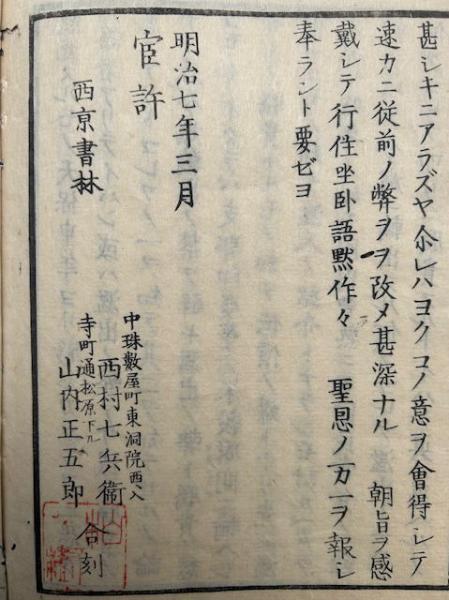 甚シキニアラズヤ尒レハヨクコノ意ヲ會得シテ
速カニ従前ノ弊ヲヲ改メ甚深ナル 朝旨ヲ感
戴シテ行住坐卧語黙作々 聖恩ノ万一ヲ報シ
奉ラント要ゼヨ
明治七年三月
官許
西京書林
中珠數屋町東洞院西入
西村七兵衞
寺町通松原下ル
山内正五郎
合刻